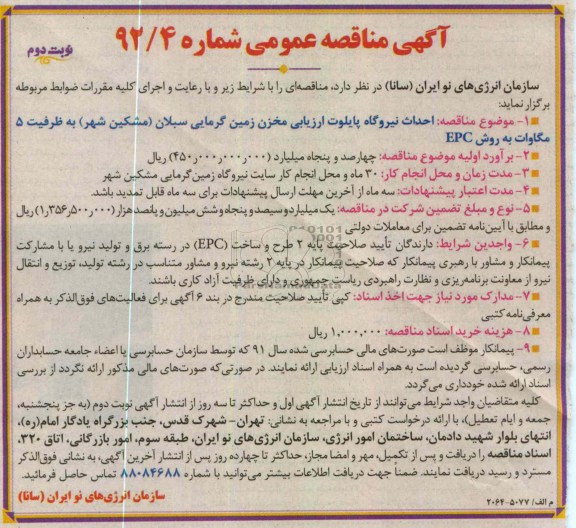 آگهی مناقصه عمومی شماره ۹۲/۴
نوبت دوم
سازمان انرژی‌های نو ایران (سانا) در نظر دارد، مناقصه‌ای را با شرایط زیر و با رعایت و اجرای کلیه مقررات ضوابط مربوطه
برگزار نماید:
۱- موضوع مناقصه: احداث نیروگاه پایلوت ارزیابی مخزن زمین گرمایی سبلان (مشکین شهر) به ظرفیت ۵
مگاوات به روش EPC
۲- برآورد اولیه موضوع مناقصه: چهارصد و پنجاه میلیارد (۴۵۰٫۰۰۰٫۰۰۰٫۰۰۰) ریال
۳- مدت زمان و محل انجام کار: ۳۰ ماه و محل انجام کار سایت نیروگاه زمین‌گرمایی مشکین شهر
۴- مدت اعتبار پیشنهادات: سه ماه از آخرین مهلت ارسال پیشنهادات برای سه ماه قابل تمدید باشد.
۵- نوع و مبلغ تضمین شرکت در مناقصه: یک میلیارد و سیصد و پنجاه وشش میلیون و پانصد هزار (۱٫۳۵۶٫۵۰۰٫۰۰۰) ریال
و مطابق با آیین‌نامه تضمین برای معاملات دولتی
۶- واجدین شرایط: دارندگان تأیید صلاحیت پایه ۲ طرح و ساخت (EPC) در رسته برق و تولید نیرو یا با مشارکت
پیمانکار و مشاور با رهبری پیمانکار که صلاحیت پیمانکار در پایه ۲ رشته نیرو و مشاور متناسب در رشته تولید، توزیع و انتقال
نیرو از معاونت برنامه‌ریزی و نظارت راهبردی ریاست جمهوری و دارای ظرفیت آزاد کاری باشند.
۷- مدارک مورد نیاز جهت اخذ اسناد: کپی تأیید صلاحیت مندرج در بند ۶ آگهی برای فعالیت‌های فوق‌الذکر به همراه
معرفی‌نامه کتبی
۸- هزینه خرید اسناد مناقصه: ۱٫۰۰۰٫۰۰۰ ریال
۹- پیمانکار موظف است صورت‌های مالی حسابرسی شده سال ۹۱ که توسط سازمان حسابرسی یا اعضاء جامعه حسابداران
رسمی، حسابرسی گردیده است به همراه اسناد ارزیابی ارائه نمایند. در صورتی‌که صورت‌های مالی مذکور ارائه نگردد از بررسی
اسناد ارائه شده خودداری می‌گردد.
کلیه متقاضیان واجد شرایط می‌توانند از تاریخ انتشار آگهی اول و حداکثر تا سه روز از انتشار آگهی نوبت دوم (به جز پنجشنبه،
جمعه و ایام تعطیل)، با ارائه درخواست کتبی و با مراجعه به نشانی: تهران- شهرک قدس، جنب بزرگراه یادگار امام(ره)،
انتهای بلوار شهید دادمان، ساختمان امور انرژی، سازمان انرژی‌های نو ایران، طبقه سوم، امور بازرگانی، اتاق ۳۲۰،
اسناد مناقصه را دریافت و پس از تکمیل، مهر و امضا مجاز، حداکثر تا چهارده روز پس از انتشار آخرین آگهی، به نشانی فوق‌الذکر
مسترد و رسید دریافت نمایند. ضمناً جهت دریافت اطلاعات بیشتر می‌توانید با شماره ۸۸۰۸۴۶۸۸ تماس حاصل فرمائید.
سازمان انرژی‌های نو ایران (سانا)
م الف/ ۵۰۷۷-۲۰۶۴